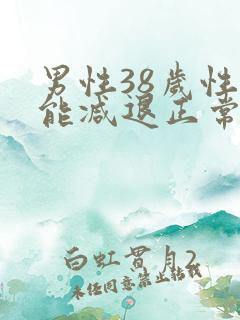 男性38岁性
能减退正常
白虹贯月2
未经同意禁止转载